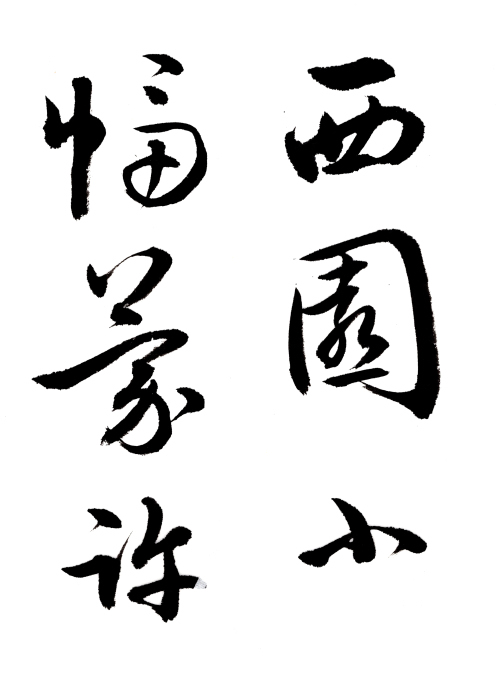 西園小
幅蒙許